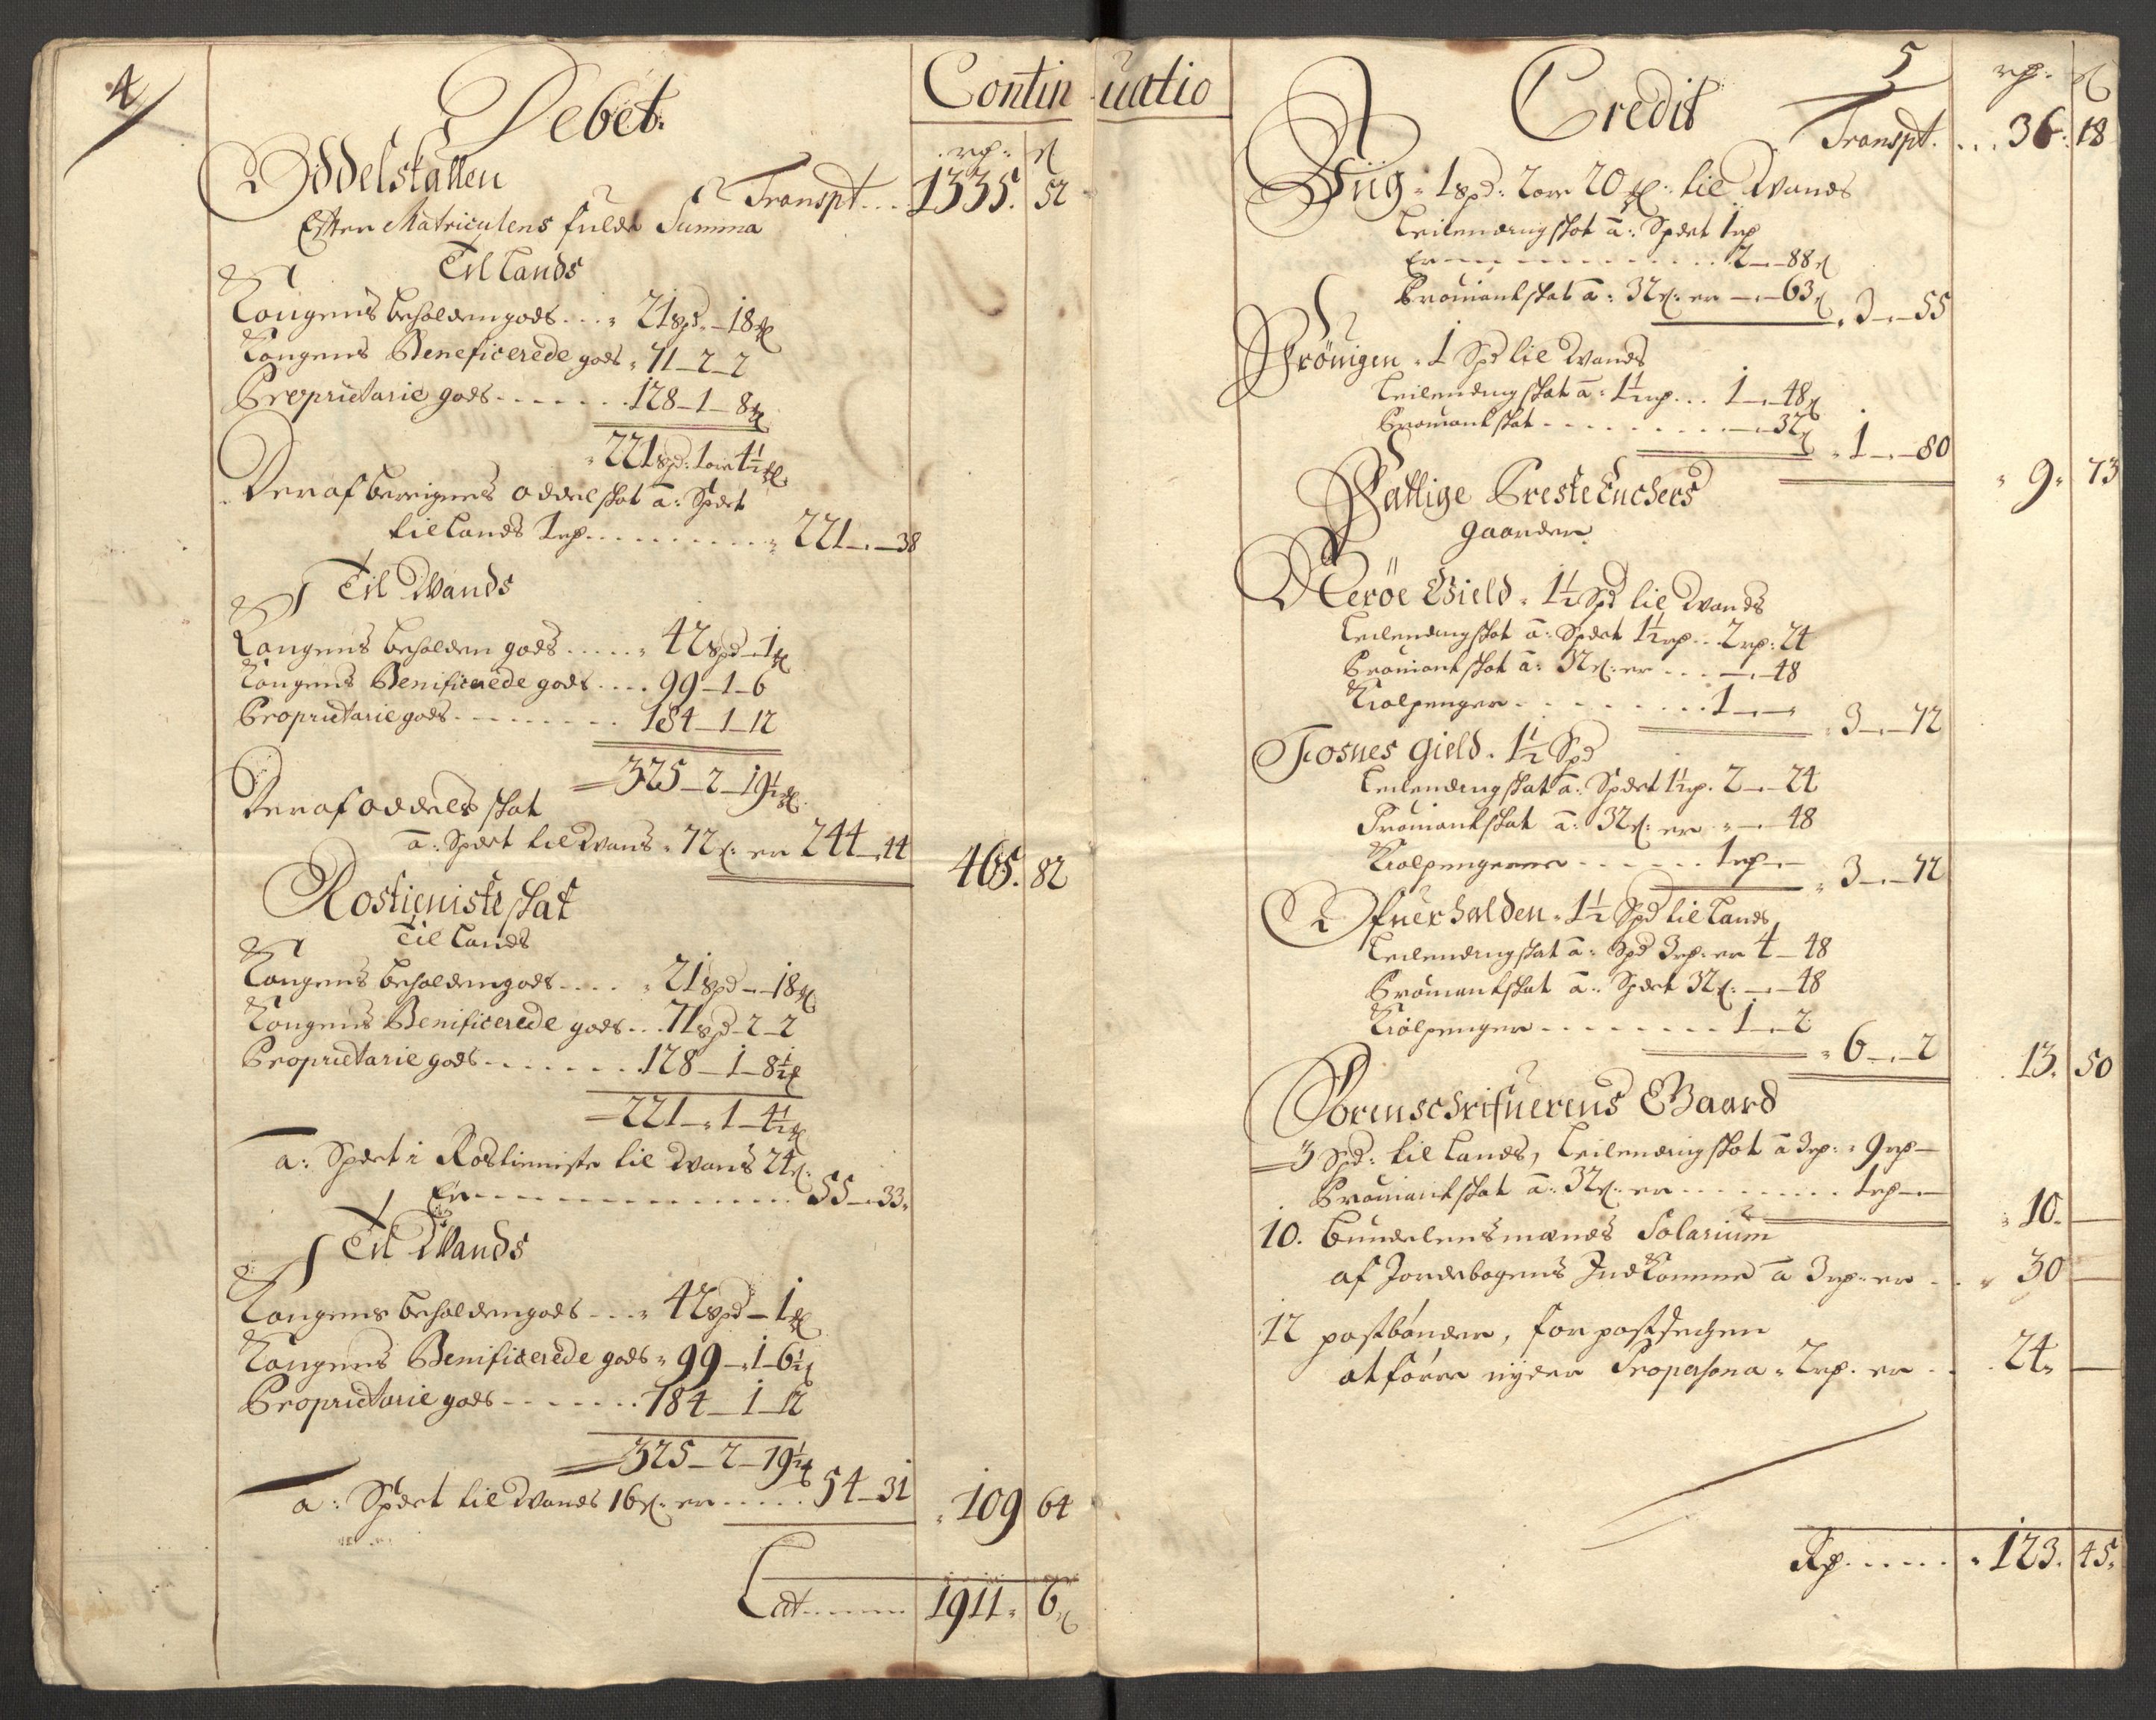 4
Debet.
Contin
rp. s
Oddelskatten
Transpt... 1335. 52
Efter Matriculens fulde Summa
Til Lands
Kongens beholden gods... 21 spd. - 18
Kongens Beneficerede gods 71 - 2 - 2
Proprietarie gods....... 128 - 1 - 8½
221 spd: 1 ore 4½
Deraf bereignes oddelskat a: Spdet
til Lands 1 rp.......... 221 - 38
Til Vands
Kongens beholden gods..... 42 spd - 1
Kongens Benificerede gods.... 99 - 1 - 6
Proprietarie gods......... 184 - 1 - 12
325 - 2 - 19½
Deraf oddels skat
a: Spdet til Vands 72 s: er 244 - 44
465. 82
Rostieniste skat
Til Lands
Kongens beholden gods.... 21 spd - 18
Kongens Benificerede gods... 71 spd - 2 - 2
Proprietarie gods....... 128 - 1 - 8½
221 - 1 - 4½
a: Spdet i Rostieniste til Vands 24 s:
Er............... 55 - 33
Til Vands
Kongens beholden gods... 42 spd - 1
Kongens Benificerede gods 99 - 1 - 6½
Proprietarie gods....... 184 - 1 - 12
325 - 2 - 19½
a: Spdet til Vands 16 s: er..... 54 - 31
109 64
Lat...... 1911. 6
uatio
Credit
5
rp. s
Transpt. ... 36. 18
1 spd: 2 ore 20: til Vands
Leilendingskat a: Spdet 1 rp
Er............ 2 - 88
Proviantskat a: 32 s: er - 63
3 - 55
1 Spd til Vands
Leilendingskat a: 1½ rp... 1 - 48
Proviantskat......... - 32
1 - 80
9. 73
Fattige Preste Enchers
gaarder
Nerøe Gield. 1½ Spd til Vands
Leilendingskat a: Spdet 1½ rp.. 2 rp: 24
Proviantskat a: 32 s: er... - 48
Kiolpenger.......... 1 -
3 - 72
Fosnes gield. 1½ Spd
Leilendingskat a: Spdet 1½ rp. 2 - 24
Proviantskat a: 32 s: er - 48
Kiolpengerne....... 1 rp -
3 - 72
Ofuerhalden. 1½ Spd til Lands
Leilendingskat a: Spd 3 rp. er 4 - 48
Proviantskat a: Spdet 32 s: - 48
Kiolpenger........ 1 - 2
6 - 2
13. 50
Sorenschrifuerens Gaard
3 Spd: til Lands, Leilendingskat a 3 rp: 9 rp -
Proviantskat a: 32 s: er........ 1 rp -
10. -
10. Bundelensmænds Solarium
af Jordebogens Indkomme a 3 rp: er .. 30 -
12 postbønder, for postsechen
at føre nyder Propersona. 2 rp. er .. 24. -
Rp..... 123. 45.